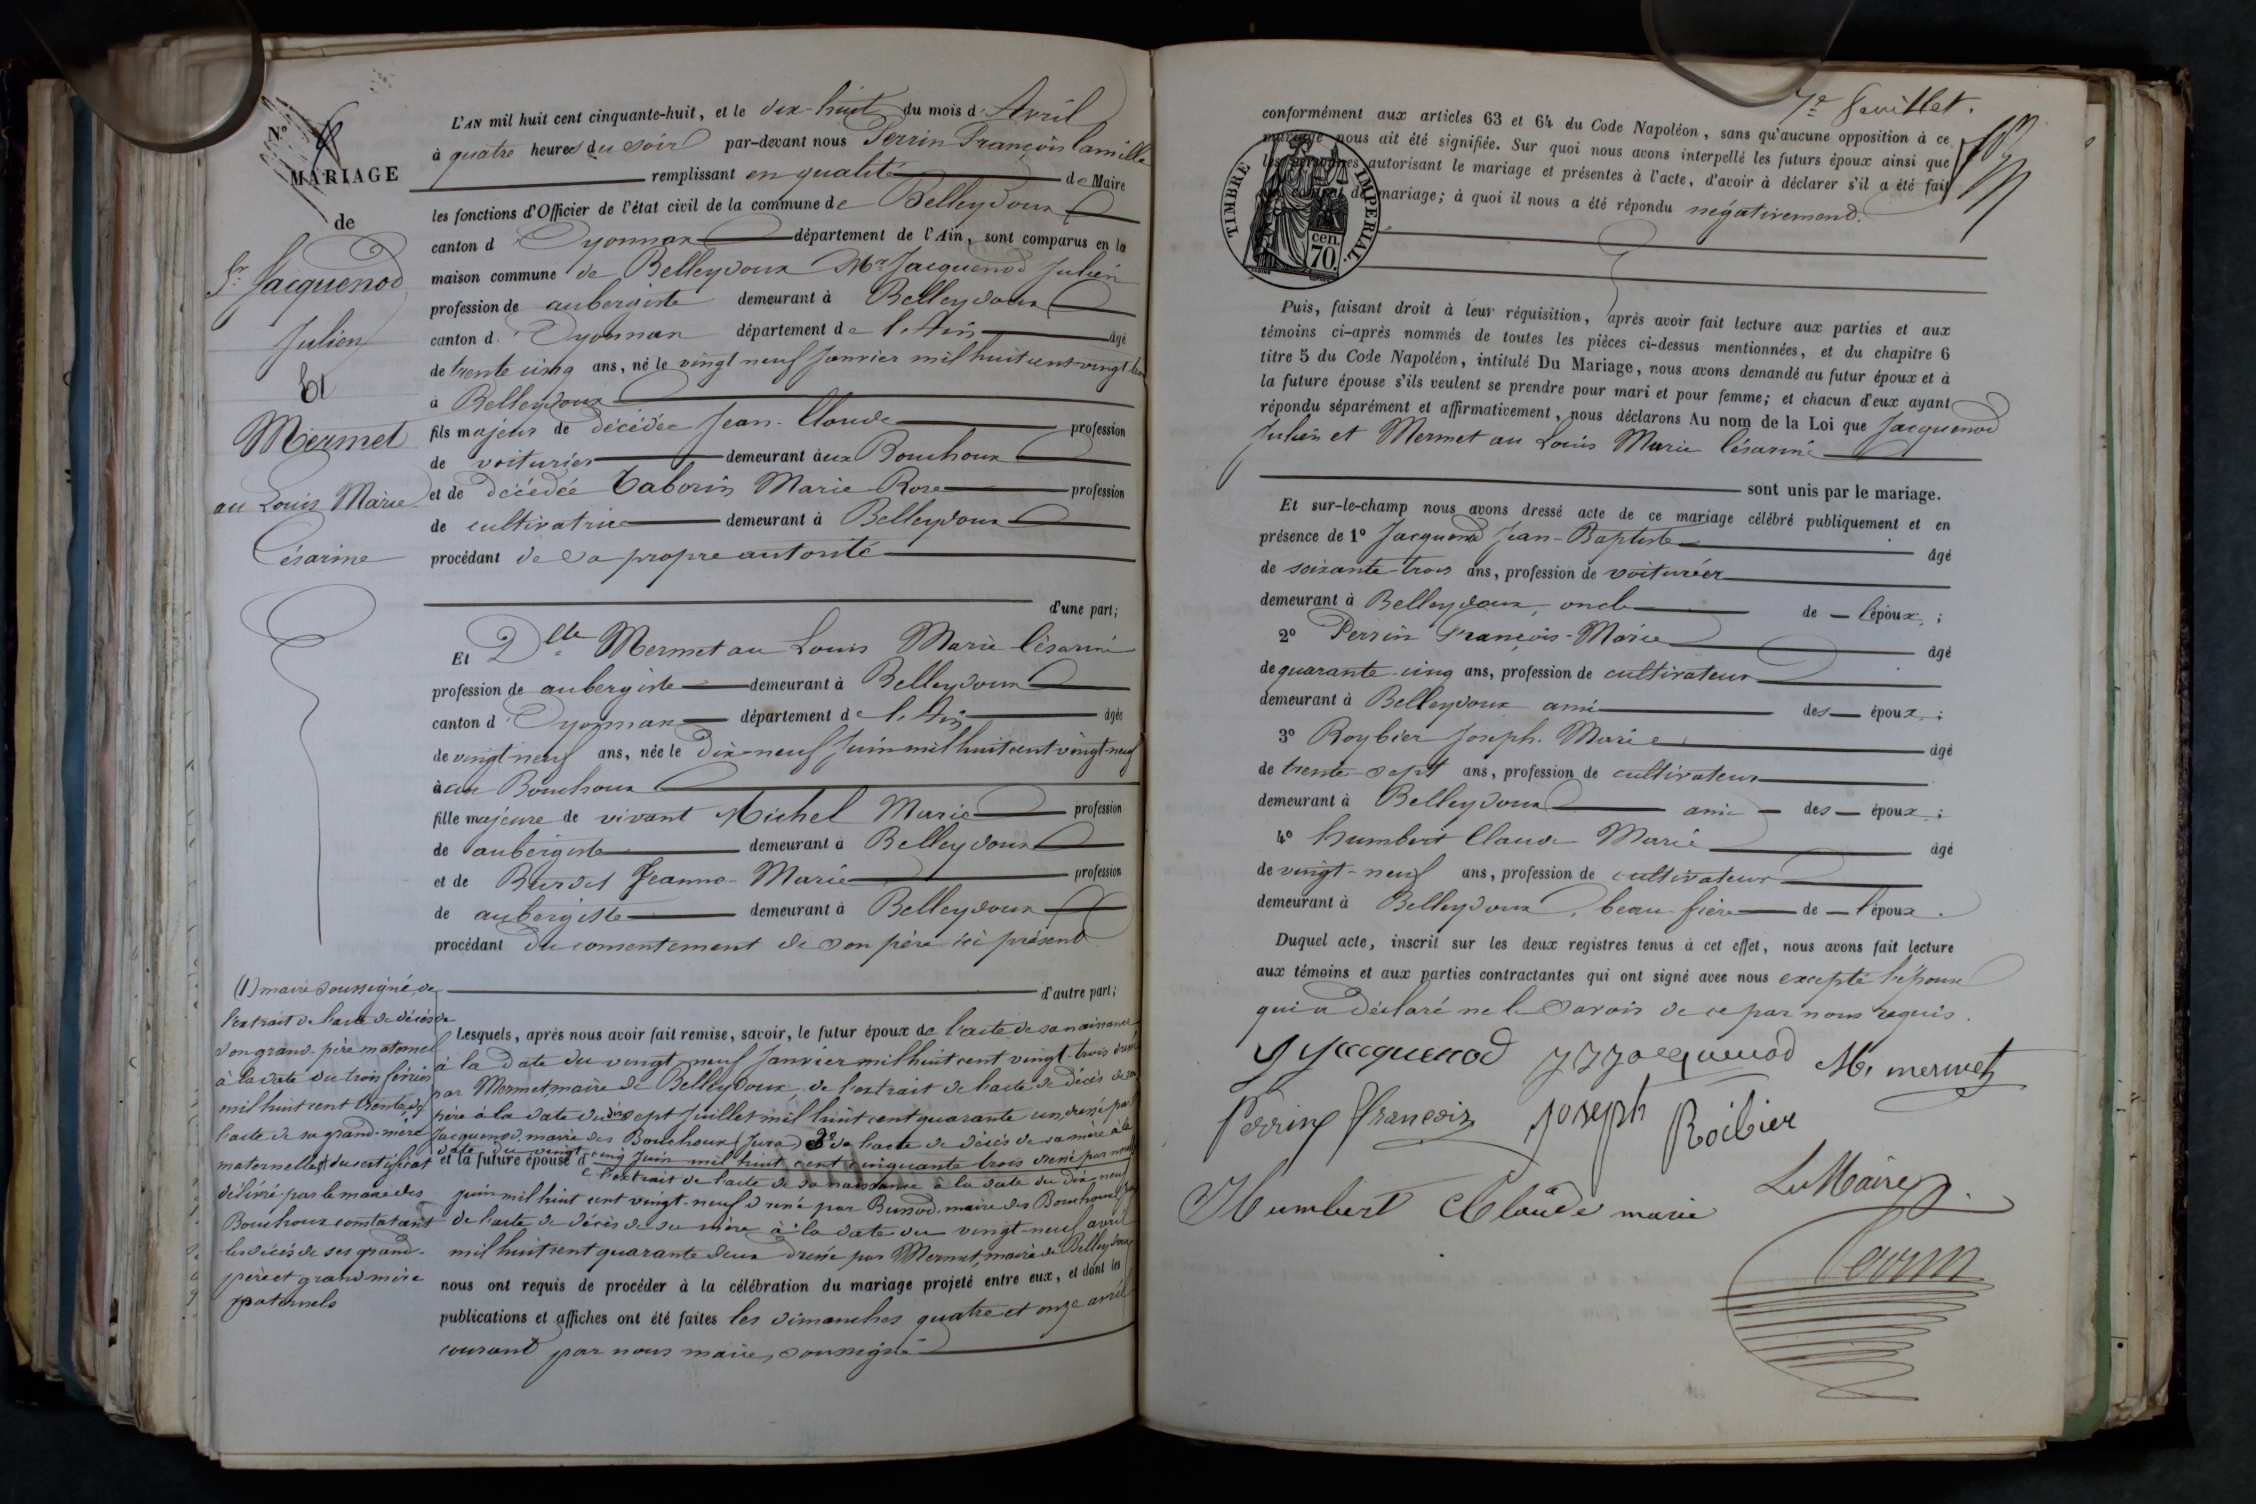 N° 8
MARIAGE
de
Sr Jacquenod
Julien
Et
Mermet
au Louis Marie
Césarine
L'AN mil huit cent cinquante-huit, et le dix-huit du mois d'Avril
à quatre heures du soir par-devant nous Perrin François Camille
remplissant en qualité de Maire
les fonctions d'Officier de l'état civil de la commune de Belleydoux
canton d'Oyonnax département de l'Ain, sont comparus en la
maison commune de Belleydoux Mr Jacquenod Julien
profession de aubergiste demeurant à Belleydoux
canton d'Oyonnax département de l'Ain âgé
de trente cinq ans, né le vingt neuf Janvier mil huit cent vingt trois
à Belleydoux
fils majeur de décédée Jean-Claude profession
de voiturier demeurant aux Bouchoux
et de décédée Taborin Marie Rose profession
de cultivatrice demeurant à Belleydoux
procédant de sa propre autorité
d'une part;
Et Dlle Mermet au Louis Marie Césarine
profession de aubergiste demeurant à Belleydoux
canton d'Oyonnax département de l'Ain âgée
de vingt neuf ans, née le Dix-neuf Juin mil huit cent vingt-neuf
à aux Bouchoux
fille majeure de vivant Michel Marie profession
de aubergiste demeurant à Belleydoux
et de Burdet Jeanne-Marie profession
de aubergiste demeurant à Belleydoux
procédant du consentement de son père ici présent
d'autre part;
Lesquels, après nous avoir fait remise, savoir, le futur époux de l'acte de sa naissance
à la date du vingt neuf Janvier mil huit cent vingt-trois dressé
par Mermet, maire de Belleydoux, de l'extrait de l'acte de décès de son
père à la date du dix sept Juillet mil huit cent quarante un, dressé par
Jacquenod, maire des Bouchoux (Jura) de l'acte de décès de sa mère à la
date du vingt cinq Juin mil huit cent cinquante trois dressé par nous
et la future épouse d
e l'extrait de l'acte de sa naissance à la date du dix-neuf
juin mil huit cent vingt-neuf dressé par Bussod, maire des Bouchoux
de l'acte de décès de sa mère à la date du vingt-neuf avril
mil huit cent quarante deux dressé par Mermet, maire de Belleydoux
nous ont requis de procéder à la célébration du mariage projeté entre eux, et dont les
publications et affiches ont été faites les dimanches quatre et onze avril
courant par nous maire, soussigné
(1) maire soussigné, de
l'extrait de l'acte de décès de
son grand-père maternel
à la date du trois février
mil huit cent trente, de
l'acte de sa grand-mère
maternelle, du certificat
délivré par le maire des
Bouchoux constatant
les décès de ses grand-
père et grand mère
paternels
7e feuillet.
conformément aux articles 63 et 64 du Code Napoléon, sans qu'aucune opposition à ce
mariage nous ait été signifiée. Sur quoi nous avons interpellé les futurs époux ainsi que
les personnes autorisant le mariage et présentes à l'acte, d'avoir à déclarer s'il a été fait
de mariage; à quoi il nous a été répondu négativement.
TIMBRE IMPERIAL
70 cen.
Puis, faisant droit à leur réquisition, après avoir fait lecture aux parties et aux
témoins ci-après nommés de toutes les pièces ci-dessus mentionnées, et du chapitre 6
titre 5 du Code Napoléon, intitulé Du Mariage, nous avons demandé au futur époux et à
la future épouse s'ils veulent se prendre pour mari et pour femme; et chacun d'eux ayant
répondu séparément et affirmativement, nous déclarons Au nom de la Loi que Jacquenod
Julien et Mermet au Louis Marie Césarine
sont unis par le mariage.
Et sur-le-champ nous avons dressé acte de ce mariage célébré publiquement et en
présence de 1° Jacquenod Jean-Baptiste âgé
de soixante-trois ans, profession de voiturier
demeurant à Belleydoux, oncle de l'époux;
2° Perrin François-Marie âgé
de quarante-cinq ans, profession de cultivateur
demeurant à Belleydoux ami des époux;
3° Roybier Joseph-Marie âgé
de trente-sept ans, profession de cultivateur
demeurant à Belleydoux ami des époux;
4° Humbert Claude Marie âgé
de vingt-neuf ans, profession de cultivateur
demeurant à Belleydoux, beau-frère de l'époux.
Duquel acte, inscrit sur les deux registres tenus à cet effet, nous avons fait lecture
aux témoins et aux parties contractantes qui ont signé avec nous excepté l'épouse
qui a déclaré ne le savoir de ce par nous requis.
J Jacquenod J J Jacquenod M. mermet
Perrin françois Joseph Roibier
Humbert Claude marie
Le Maire
Perrin